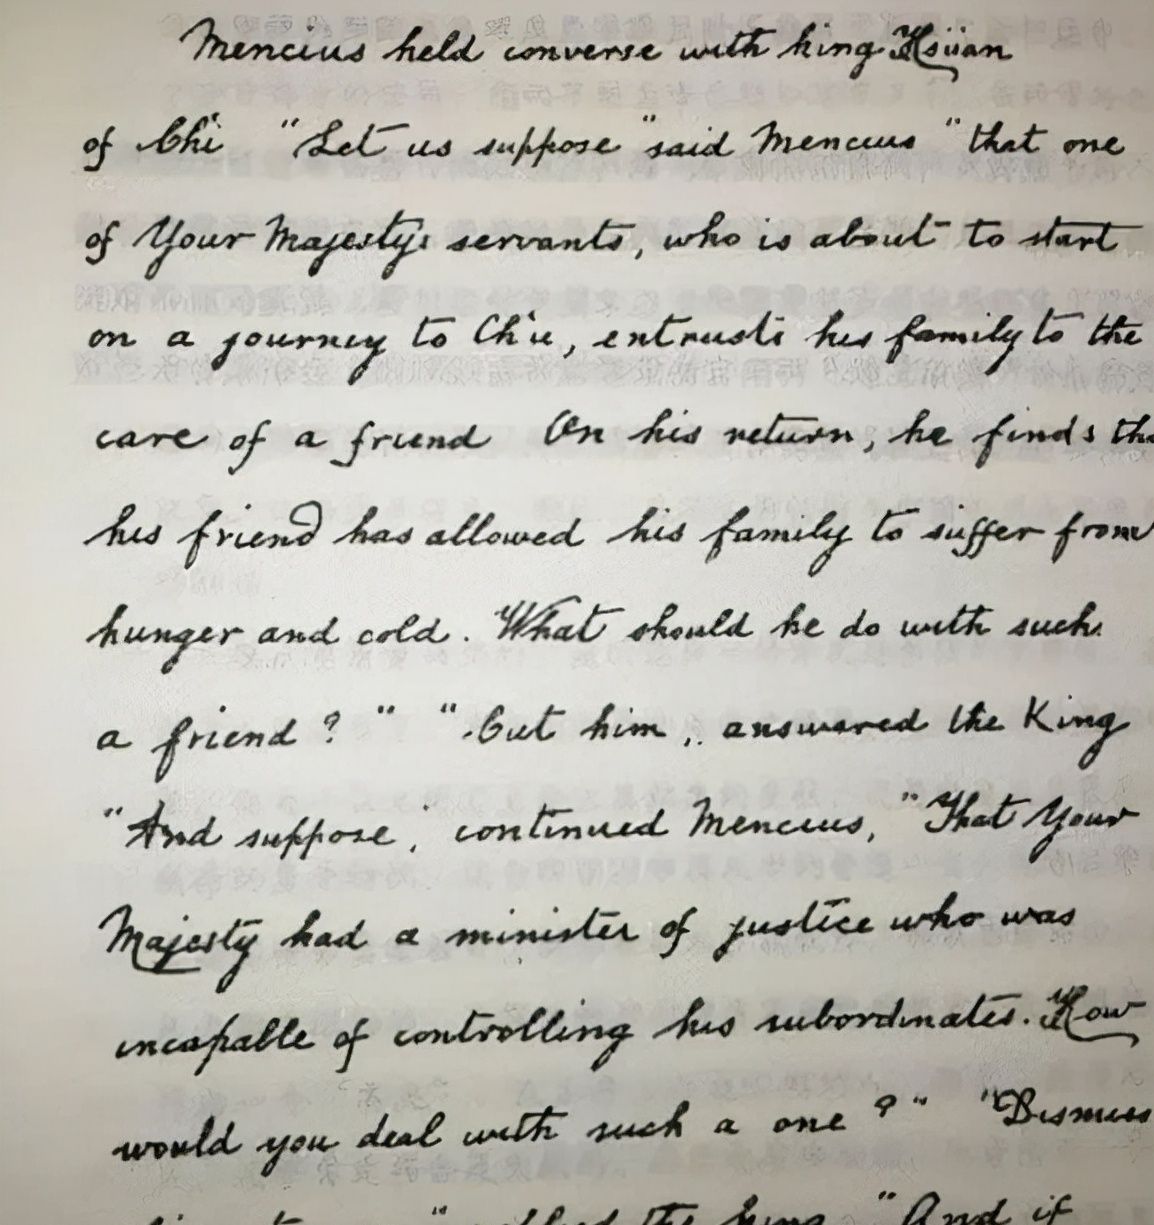 Mencius held converse with king Hsüan
of Ch'i "Let us suppose" said Mencius "that one
of Your Majesty's servants, who is about to start
on a journey to Ch'u, entrusts his family to the
care of a friend On his return, he finds tha
his friend has allowed his family to suffer from
hunger and cold. What should he do with such
a friend?" "Cut him, answered the King
"And suppose, continued Mencius, "That Your
Majesty had a minister of justice who was
incapable of controlling his subordinates. How
would you deal with such a one?" "Dismiss
the king "And if